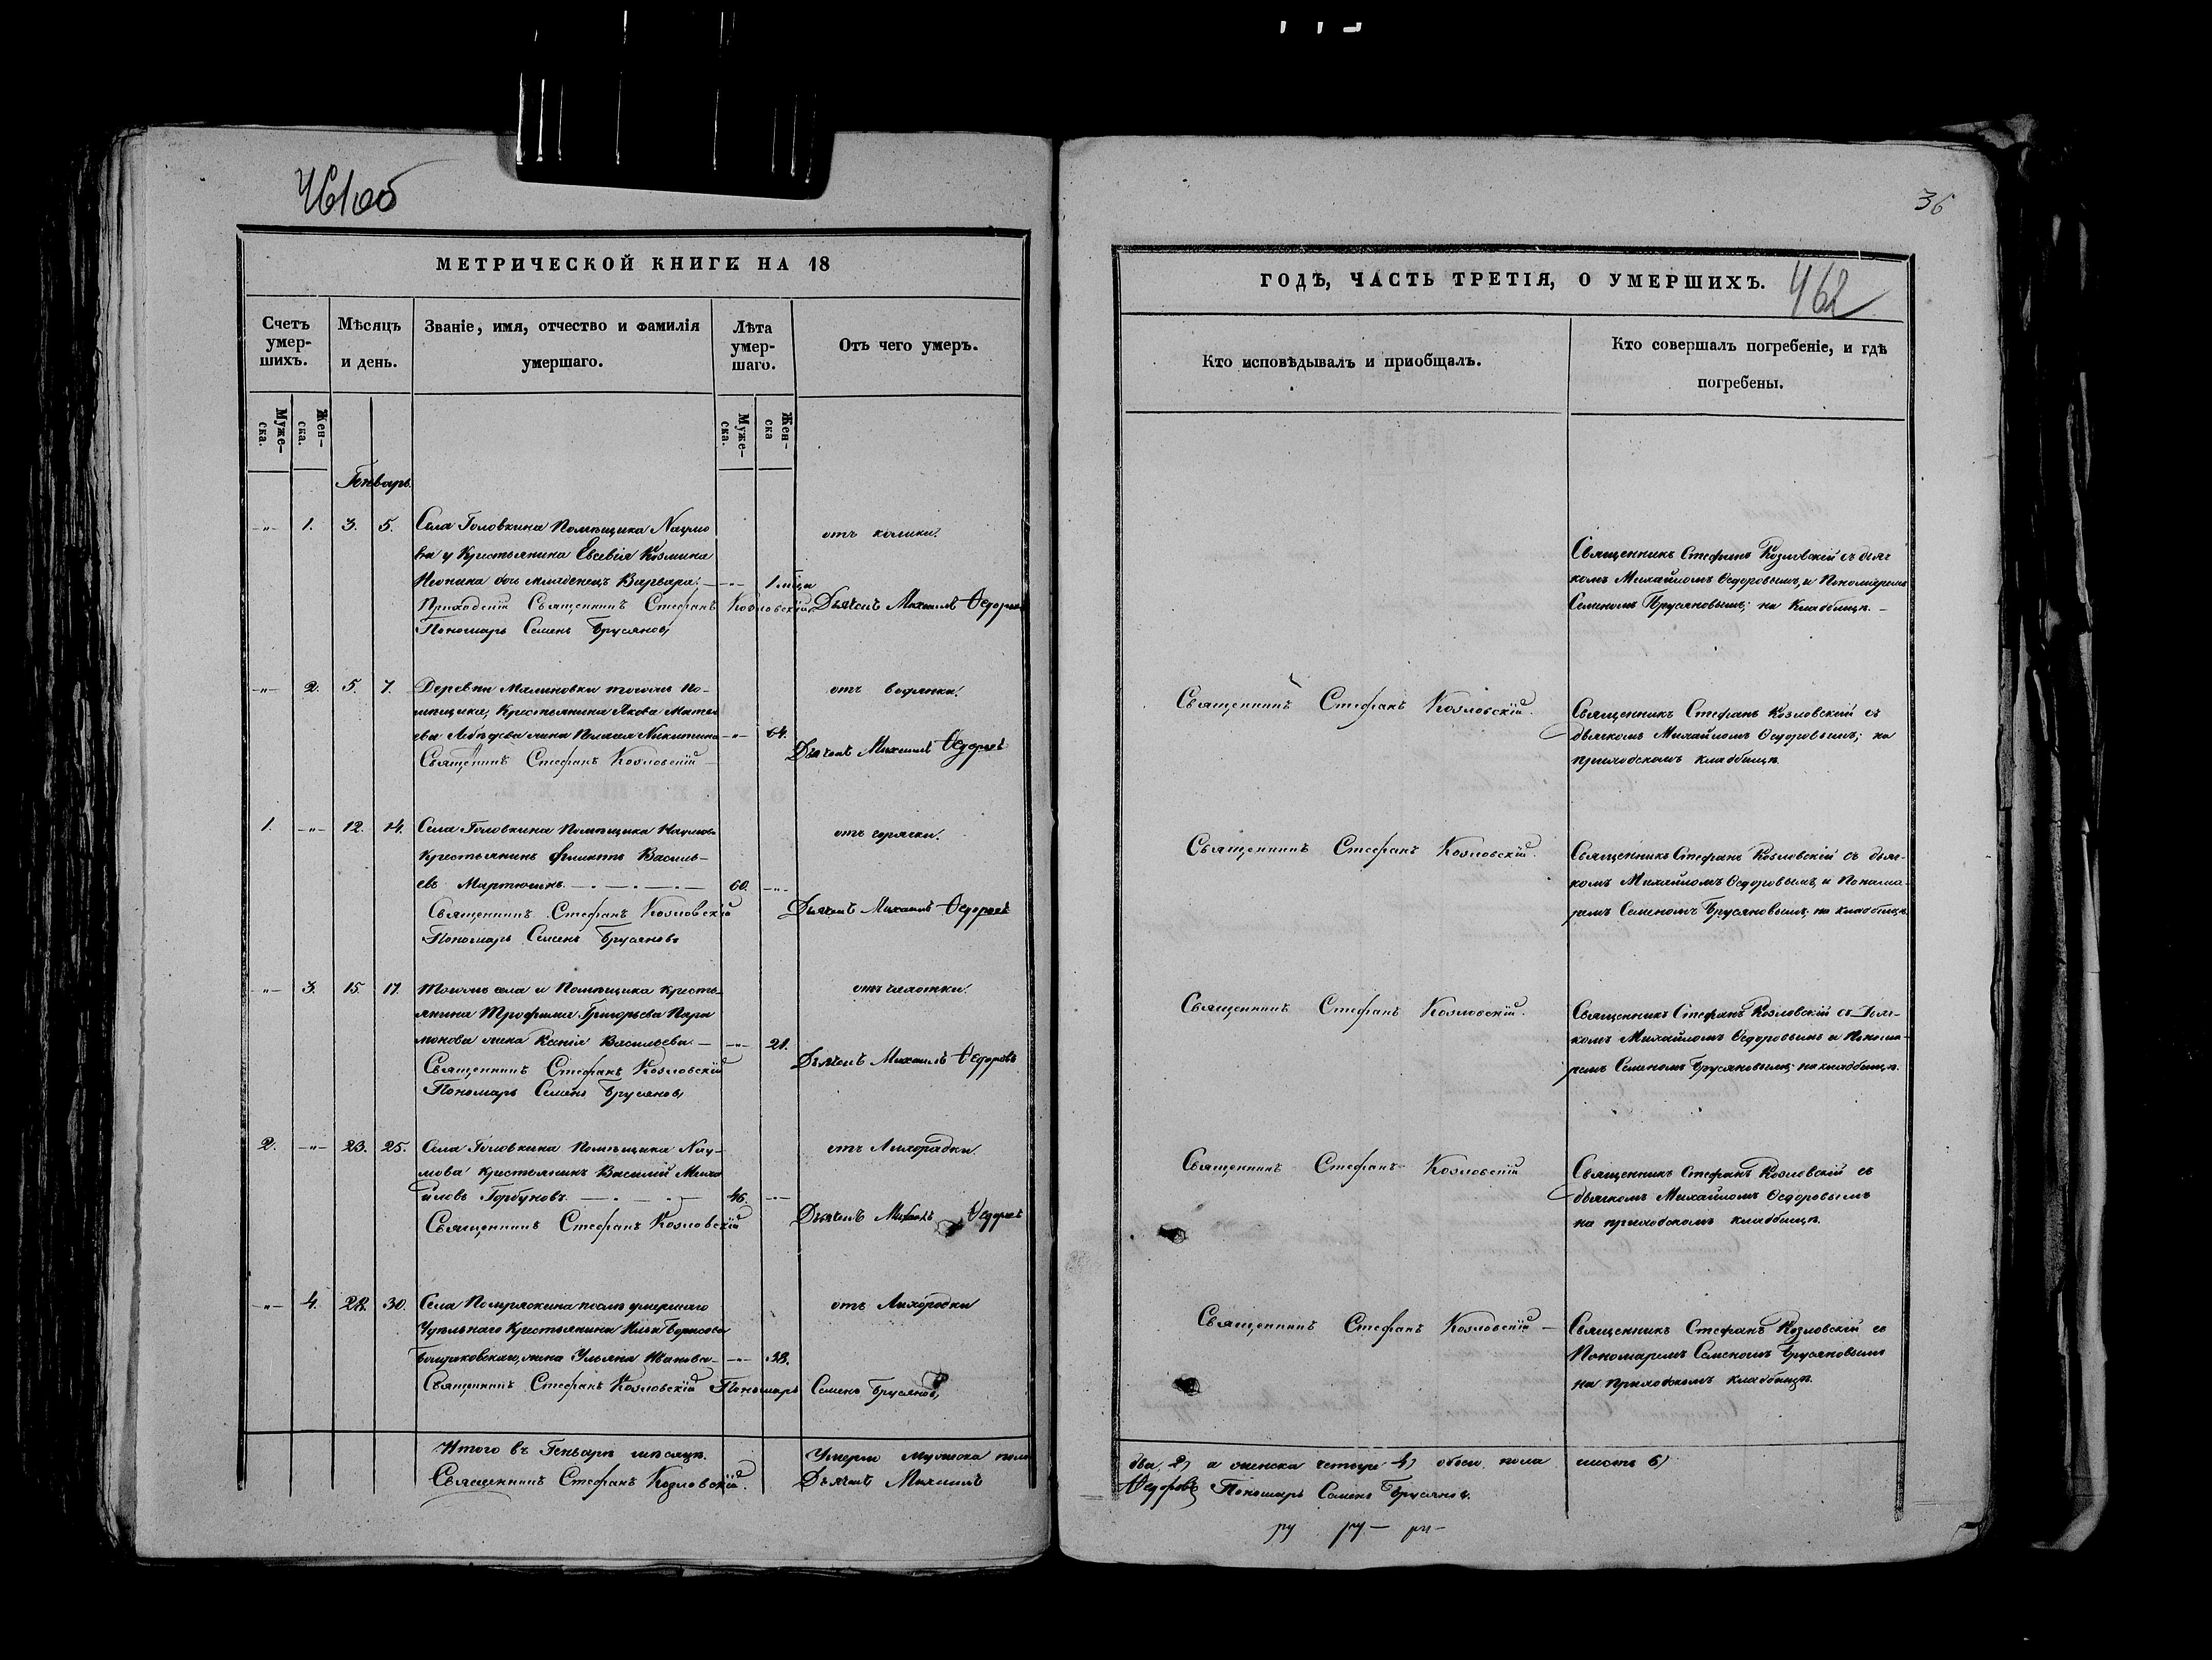 461об
МЕТРИЧЕСКОЙ КНИГИ НА 18
Счетъ умер-шихъ.
Мѣсяцъ и день.
Званіе, имя, отчество и фамилія умершаго.
Лѣта умер-шаго.
Отъ чего умеръ.
Муже-ска.
Жен-ска.
Муже-ска.
Жен-ска
Генварь.
-"- 1. 3. 5. Села Головкина Помѣщика Наумо
ва у Крестьянина Евсевія Козмина
дочь младенецъ Варвара. -"- 1. мѣс.
отъ колики.
Священникъ Стефанъ Козловскій Дьячекъ Михаилъ Ѳедоровъ
Пономарь Семенъ Брусяновъ
-"- 2. 5. 7. Деревни Малиновки тогожъ По-
мѣщика, Крестьянина Якова Матве
ева жена Пелагея Никитина -"- 64.
отъ водянки.
Священникъ Стефанъ Козловскій Дьячекъ Михаилъ Ѳедоровъ
1. -"- 12. 14. Села Головкина Помѣщика Наумова
Крестьянинъ Филиппъ Василь-
евъ Мартюшинъ. 60. -"-
отъ горячки.
Священникъ Стефанъ Козловскій Дьячекъ Михаилъ Ѳедоровъ
Пономарь Семенъ Брусяновъ
-"- 3. 15. 17. Тогожъ села и Помѣщика Кресть-
янина Трофима Григорьева Пара
монова жена Ксенія Васильева -"- 21.
отъ чахотки.
Священникъ Стефанъ Козловскій Дьячекъ Михаилъ Ѳедоровъ
Пономарь Семенъ Брусяновъ
2. -"- 23. 25. Села Головкина Помѣщика Нау-
мова крестьянинъ Василій Миха
йловъ Горбуновъ 46. -"-
отъ Лихорадки.
Священникъ Стефанъ Козловскій Дьячекъ Михаилъ Ѳедоровъ
-"- 4. 28. 30. Села послѣ умершаго
Удѣльнаго Крестьянина Ильи Борисова
жена Ульяна Иванова -"- 38.
отъ Лихорадки
Священникъ Стефанъ Козловскій Пономарь Семенъ Брусяновъ
Итого въ Генварѣ мѣсяцѣ. Умерло мужеска пола
Священникъ Стефанъ Козловскій. Дьячекъ Михаилъ
36
ГОДЪ, ЧАСТЬ ТРЕТІЯ, О УМЕРШИХЪ.
462
Кто исповѣдывалъ и пріобщалъ.
Кто совершалъ погребеніе, и гдѣ погребены.
Священникъ Стефанъ Козловскій съ дьяч
комъ Михайломъ Ѳедоровымъ, и Пономаремъ
Семеномъ Брусяновымъ; на Кладбищѣ.
Священникъ Стефанъ Козловскій.
Священникъ Стефанъ Козловскій съ
дьячкомъ Михайломъ Ѳедоровымъ; на
приходскомъ кладбищѣ
Священникъ Стефанъ Козловскій.
Священникъ Стефанъ Козловскій съ дьяч-
комъ Михайломъ Ѳедоровымъ, и Понома-
ремъ Семеномъ Брусяновымъ; на кладбищѣ.
Священникъ Стефанъ Козловскій.
Священникъ Стефанъ Козловскій съ Дьяч-
комъ Михайломъ Ѳедоровымъ и Понома-
ремъ Семеномъ Брусяновымъ; на кладбищѣ.
Священникъ Стефанъ Козловскій
Священникъ Стефанъ Козловскій съ
дьячкомъ Михайломъ Ѳедоровымъ
на приходскомъ кладбищѣ.
Священникъ Стефанъ Козловскій
Священникъ Стефанъ Козловскій съ
Пономаремъ Семеномъ Брусяновымъ
на приходскомъ кладбищѣ.
два, 2) а женска четыре 4) обоего пола шесть 6)
Ѳедоровъ Пономарь Семенъ Брусяновъ.